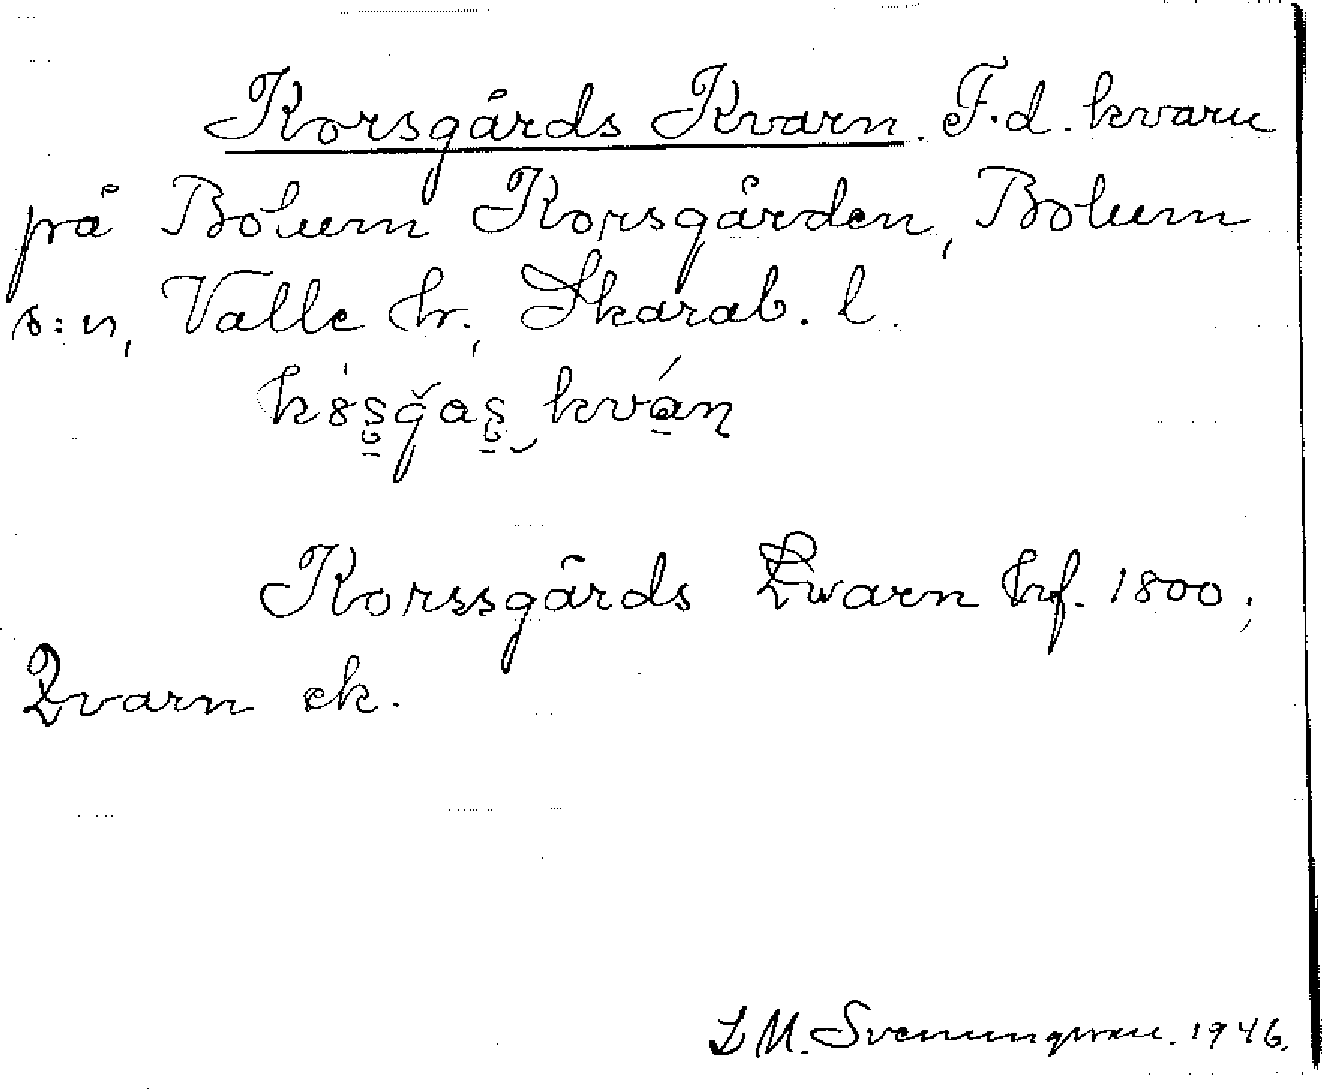 Korsgårds Kvarn. F.d. kvarn
på Bolum Korsgården, Bolum
s:n, Valle hr., Skarab. l.
Korssgårds Qwarn hf. 1800;
Qvarn ek.
S M. Svenungsson. 1946.